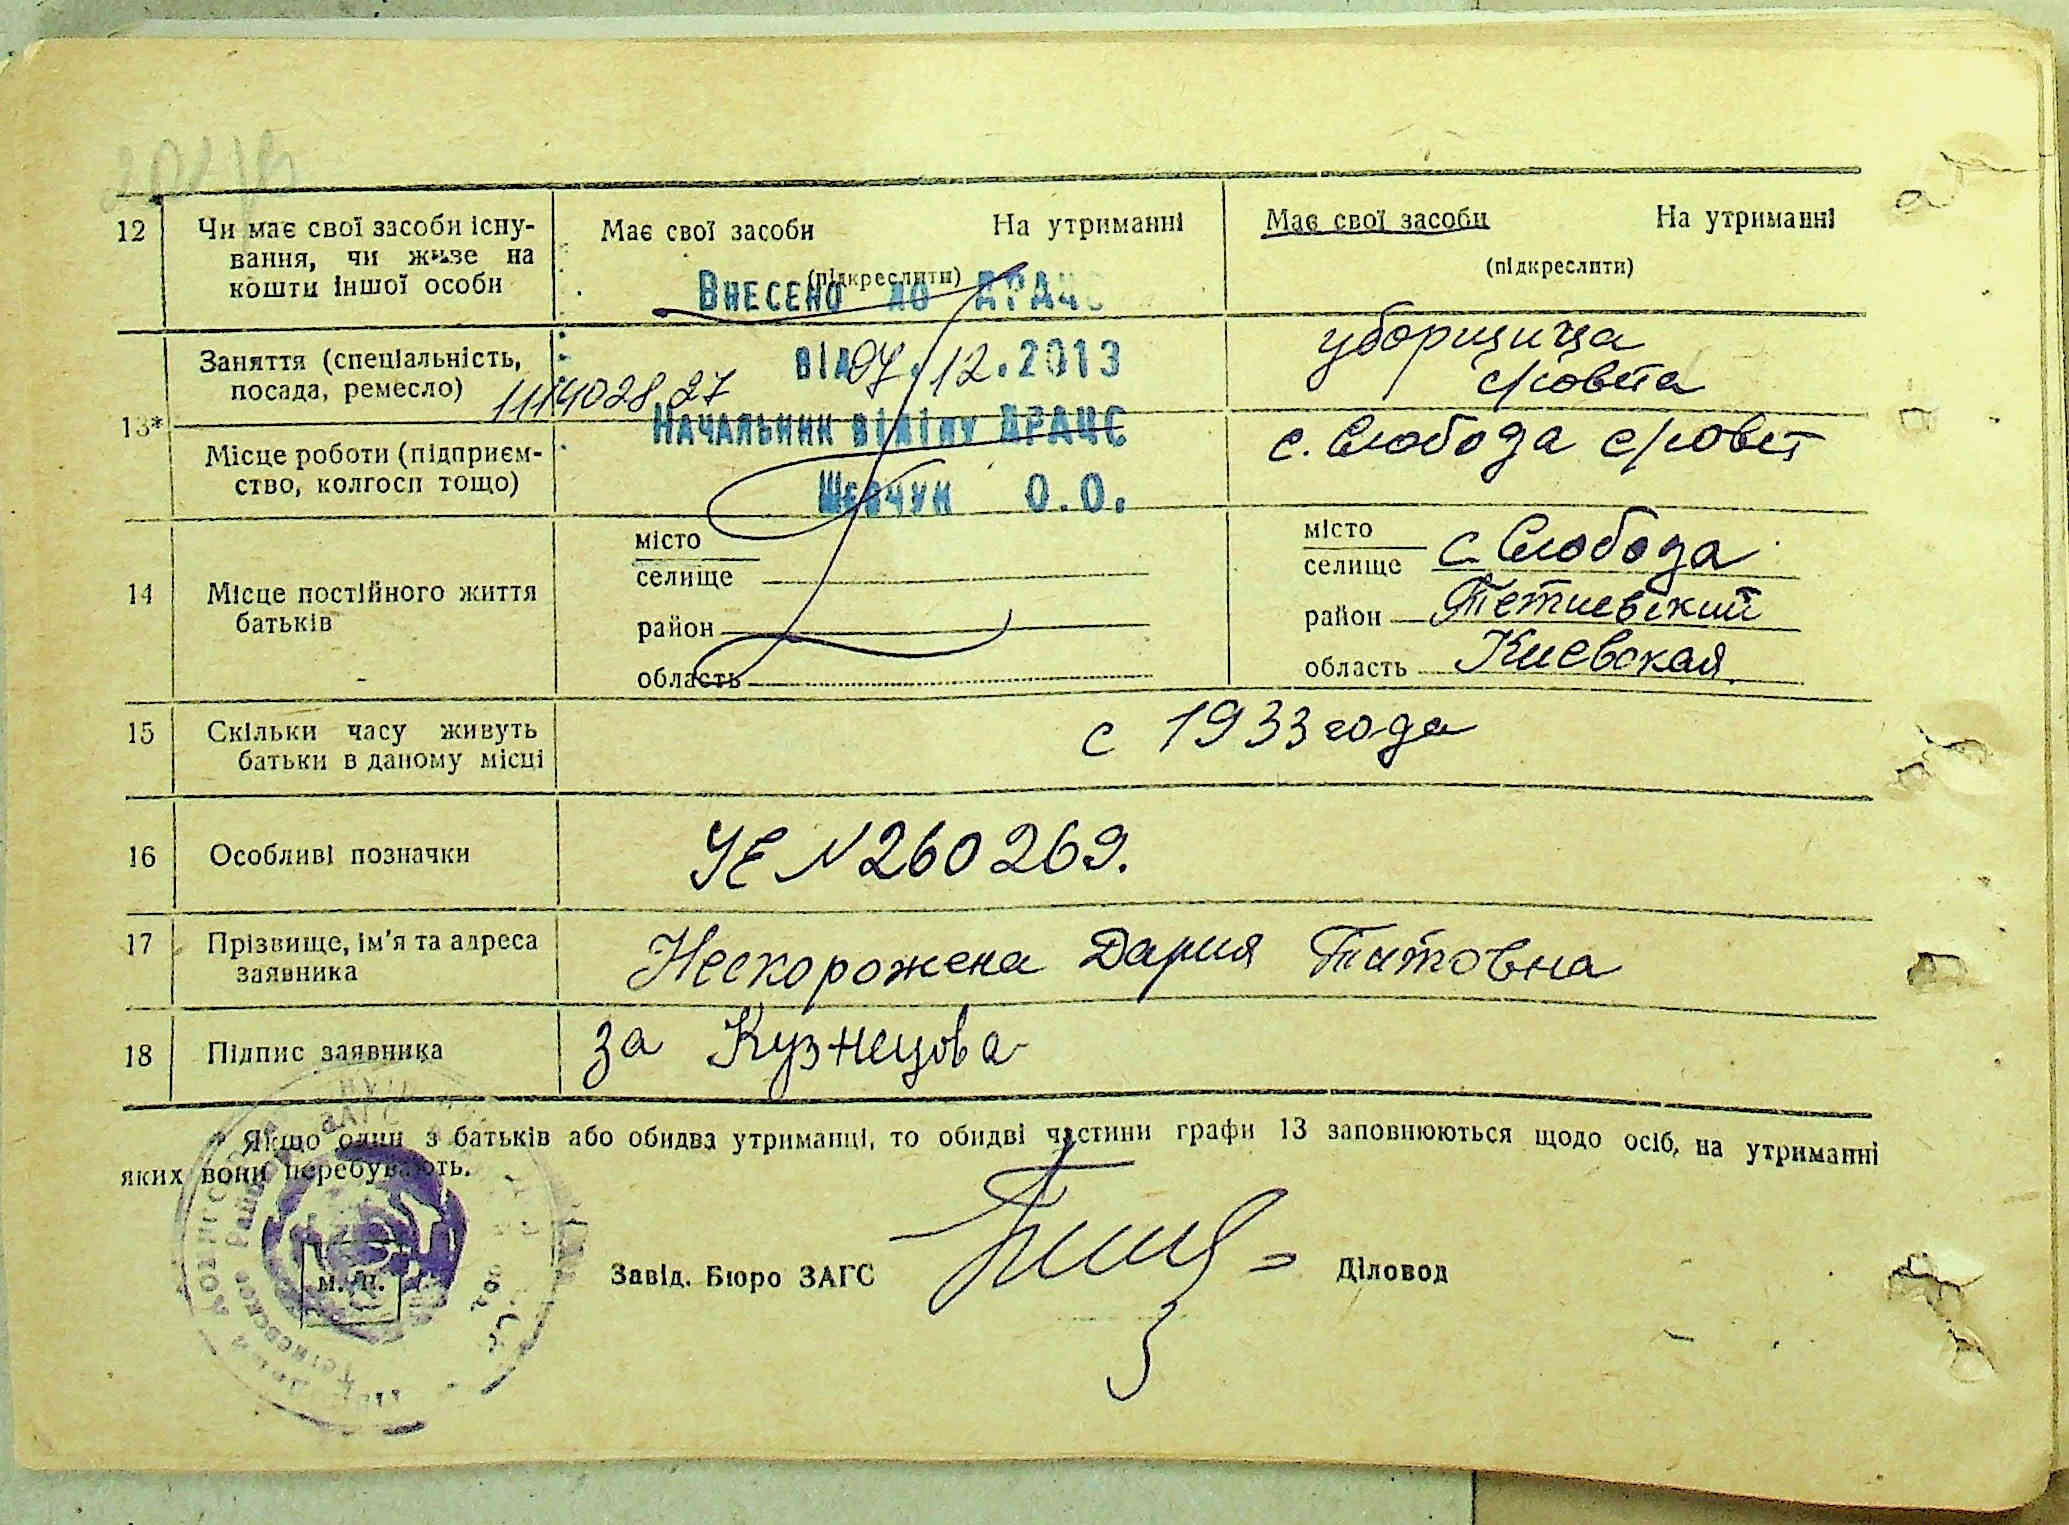 12 Чи має свої засоби існу-
вання, чи живе на
кошти іншої особи
Має свої засоби На утриманні
(підкреслити)
Має свої засоби На утриманні
(підкреслити)
Внесено до ДРАЦС
від 07.12.2013
Начальник відділу ДРАЦС
Шевчук О.О.
13* Заняття (спеціальність,
посада, ремесло)
уборщица
с/совета
Місце роботи (підприєм-
ство, колгосп тощо)
с. Слобода с/совет
14 Місце постійного життя
батьків
місто
селище
район
область
місто
селище с. Слобода
район Тетиевский
область Киевская
15 Скільки часу живуть
батьки в даному місці
с 1933 года
16 Особливі позначки
УЕ N 260269.
17 Прізвище, ім'я та адреса
заявника
Нескорожена Дария Титовна
18 Підпис заявника
за Кузнецова
Якщо один з батьків або обидва утриманці, то обидві частини графи 13 заповнюються щодо осіб, на утриманні
яких вони перебувають.
М. П.
Завід. Бюро ЗАГС Діловод